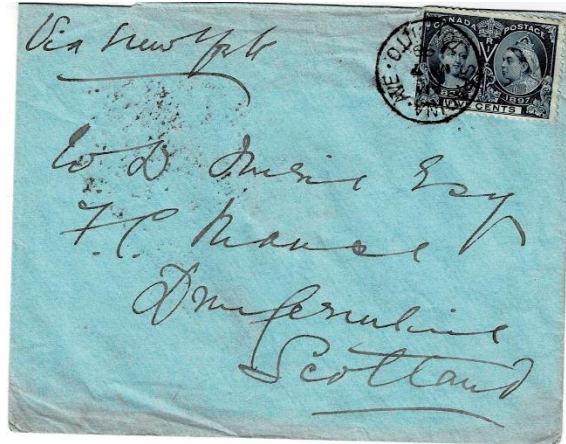 Via New York
CANADA POSTAGE
1837 1897
FIVE CENTS
W D Esq
F.C. Manse
Dunfermline
Scotland